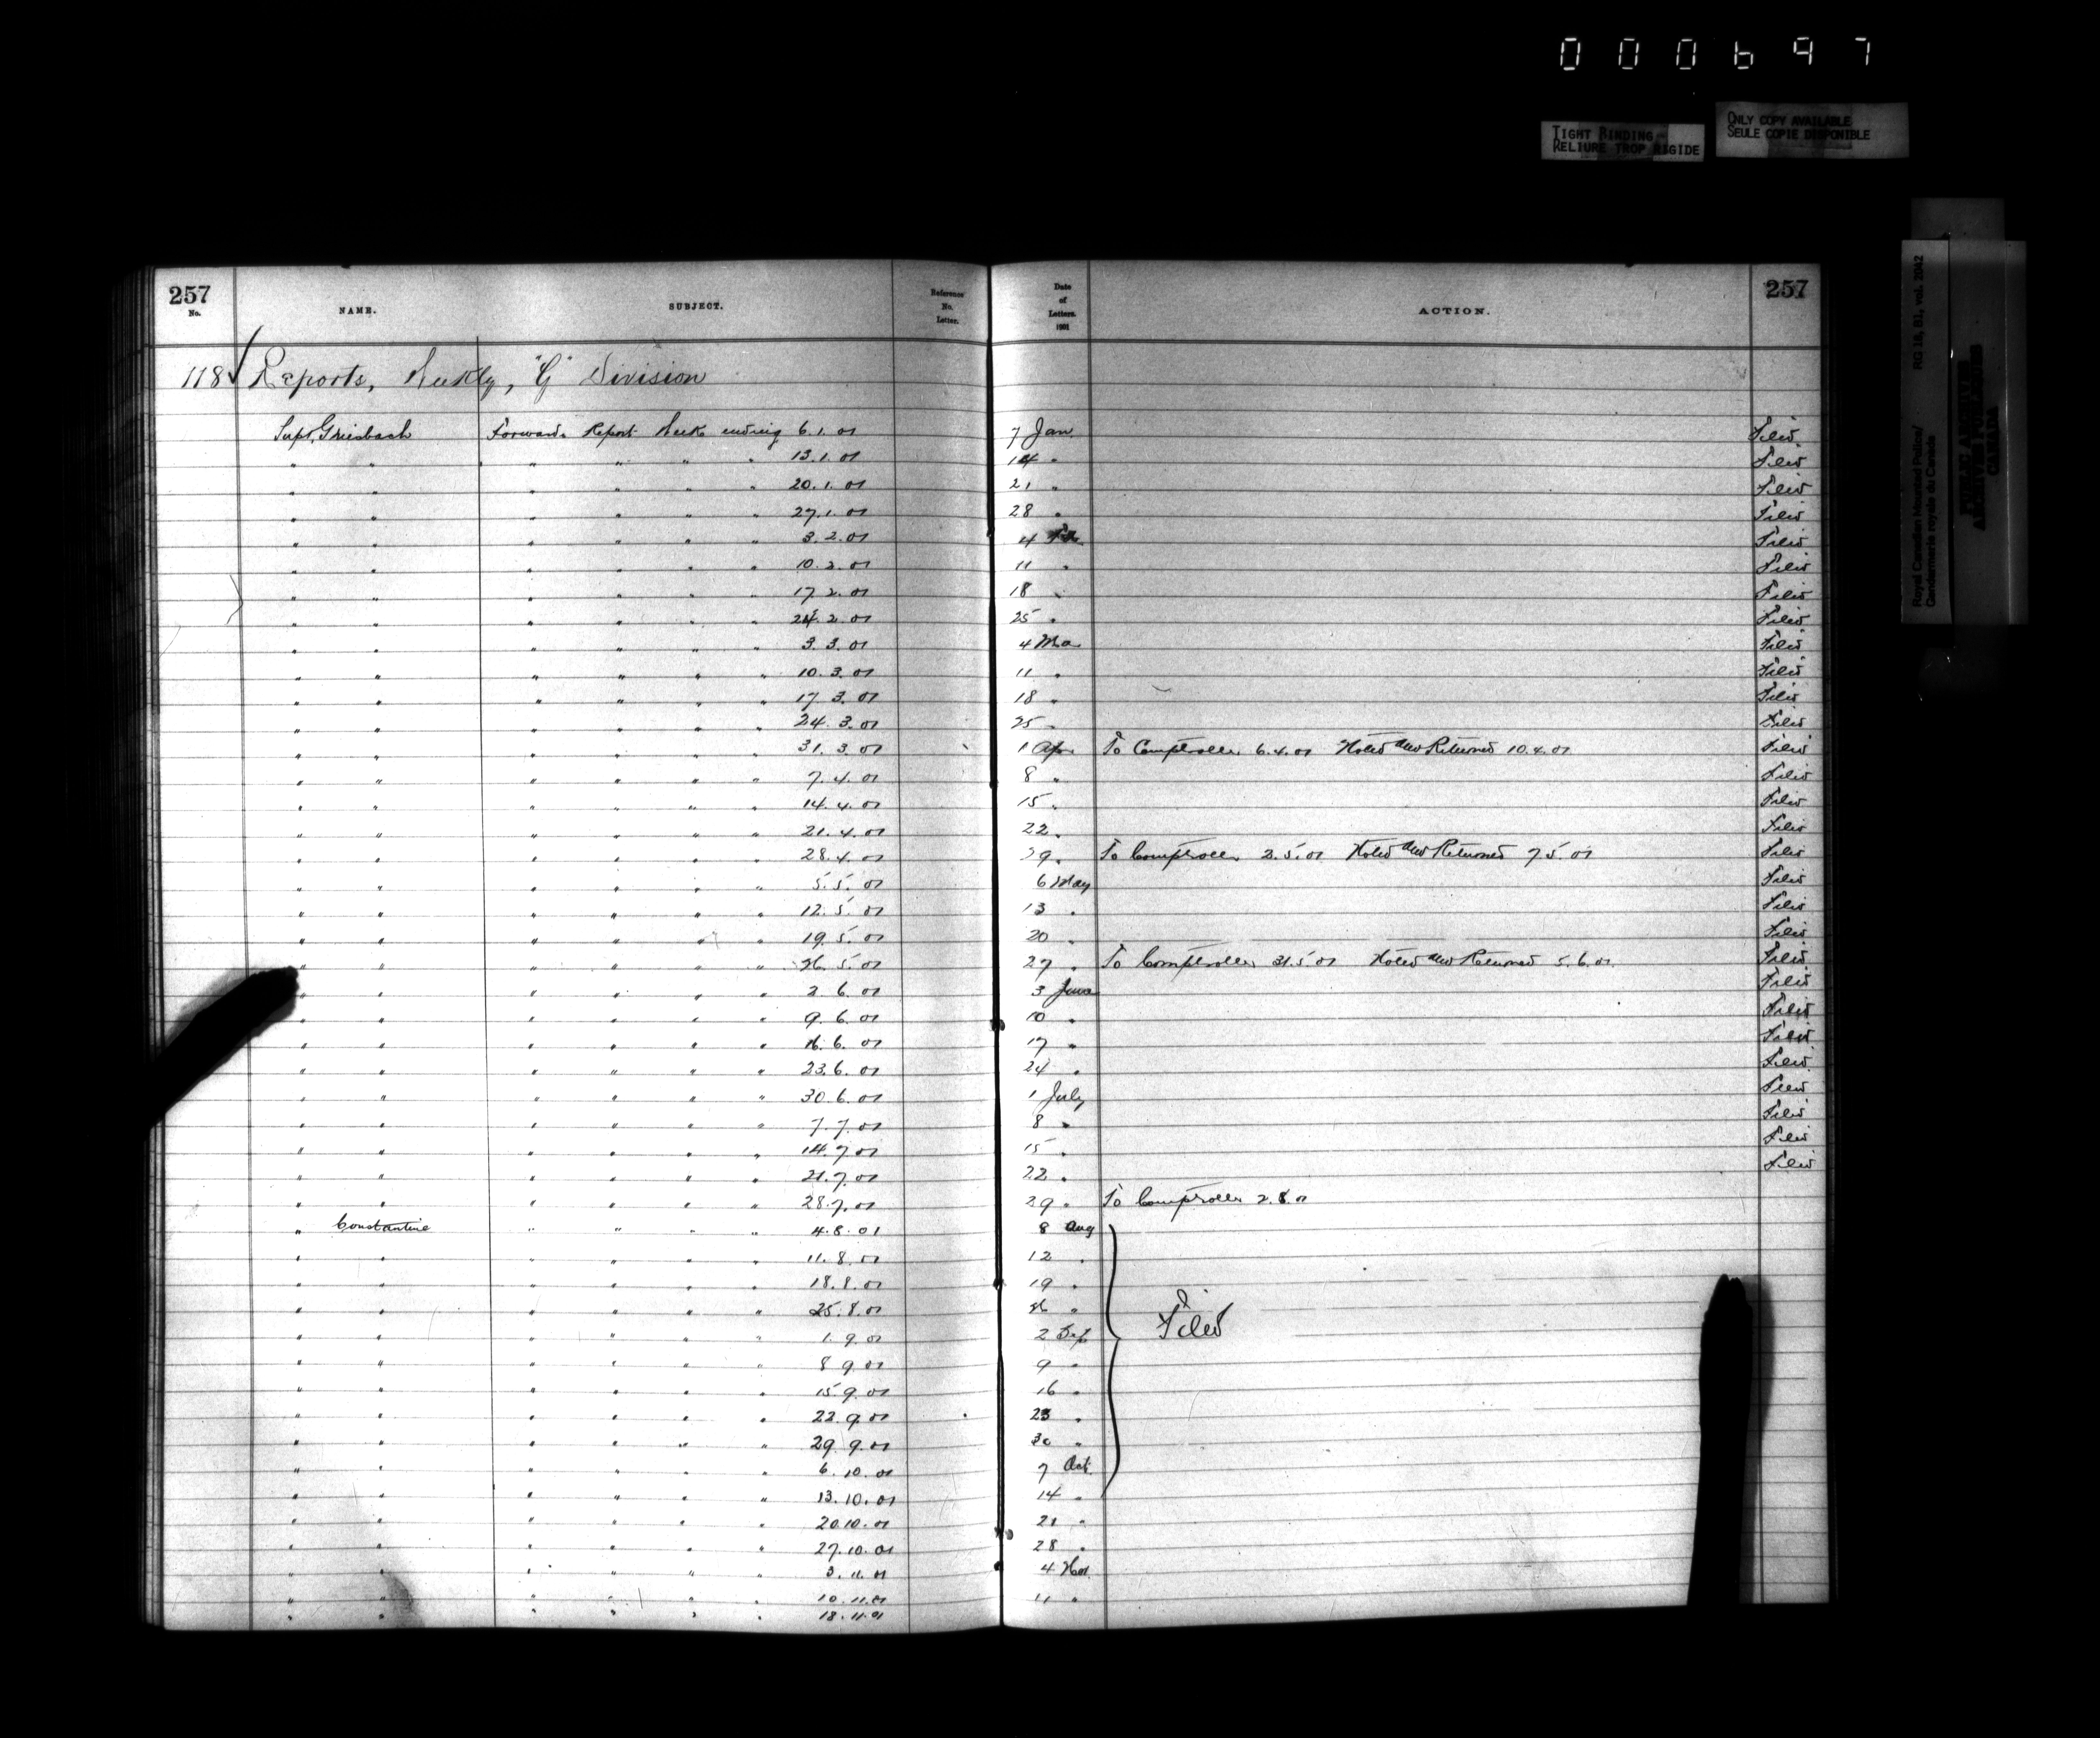 000697
TIGHT BINDING
RELIURE TROP RIGIDE
ONLY COPY AVAILABLE
SEULE COPIE DISPONIBLE
Royal Canadian Mounted Police/ RG 18, B1, vol. 2042
Gendarmerie royale du Canada
PUBLIC ARCHIVES
ARCHIVES PUBLIQUES
CANADA
257 No. NAME. SUBJECT. Reference No. Letter. Date of Letters. 1901 ACTION. 257
118 Reports, Weekly, "G" Division
Supt. Griesbach Forwards Report Week ending 6.1.01 7 Jan. Filed
" " " " " " 13.1.01 14 " Filed
" " " " " " 20.1.01 21 " Filed
" " " " " " 27.1.01 28 " Filed
" " " " " " 3.2.01 4 Feb Filed
" " " " " " 10.2.01 11 " Filed
" " " " " " 17.2.01 18 " Filed
" " " " " " 24.2.01 25 " Filed
" " " " " " 3.3.01 4 Mar Filed
" " " " " " 10.3.01 11 " Filed
" " " " " " 17.3.01 18 " Filed
" " " " " " 24.3.01 25 " Filed
" " " " " " 31.3.01 1 Apr To Comptroller 6.4.01 Noted and Returned 10.4.01 Filed
" " " " " " 7.4.01 8 " Filed
" " " " " " 14.4.01 15 " Filed
" " " " " " 21.4.01 22 " Filed
" " " " " " 28.4.01 29 " To Comptroller 2.5.01 Noted and Returned 7.5.01 Filed
" " " " " " 5.5.01 6 May Filed
" " " " " " 12.5.01 13 " Filed
" " " " " " 19.5.01 20 " Filed
" " " " " " 26.5.01 27 " To Comptroller 31.5.01 Noted and Returned 5.6.01 Filed
" " " " " " 2.6.01 3 June Filed
" " " " " " 9.6.01 10 " Filed
" " " " " " 16.6.01 17 " Filed
" " " " " " 23.6.01 24 " Filed
" " " " " " 30.6.01 1 July Filed
" " " " " " 7.7.01 8 " Filed
" " " " " " 14.7.01 15 " Filed
" " " " " " 21.7.01 22 " Filed
" " " " " " 28.7.01 29 " To Comptroller 2.8.01
" Constantine " " " " 4.8.01 8 Aug
" " " " " " 11.8.01 12 "
" " " " " " 18.8.01 19 "
" " " " " " 25.8.01 26 "
" " " " " " 1.9.01 2 Sep Filed
" " " " " " 8.9.01 9 "
" " " " " " 15.9.01 16 "
" " " " " " 22.9.01 23 "
" " " " " " 29.9.01 30 "
" " " " " " 6.10.01 7 Oct.
" " " " " " 13.10.01 14 "
" " " " " " 20.10.01 21 "
" " " " " " 27.10.01 28 "
" " " " " " 3.11.01 4 Nov.
" " " " " " 10.11.01 11 "
" " " " " " 18.11.01